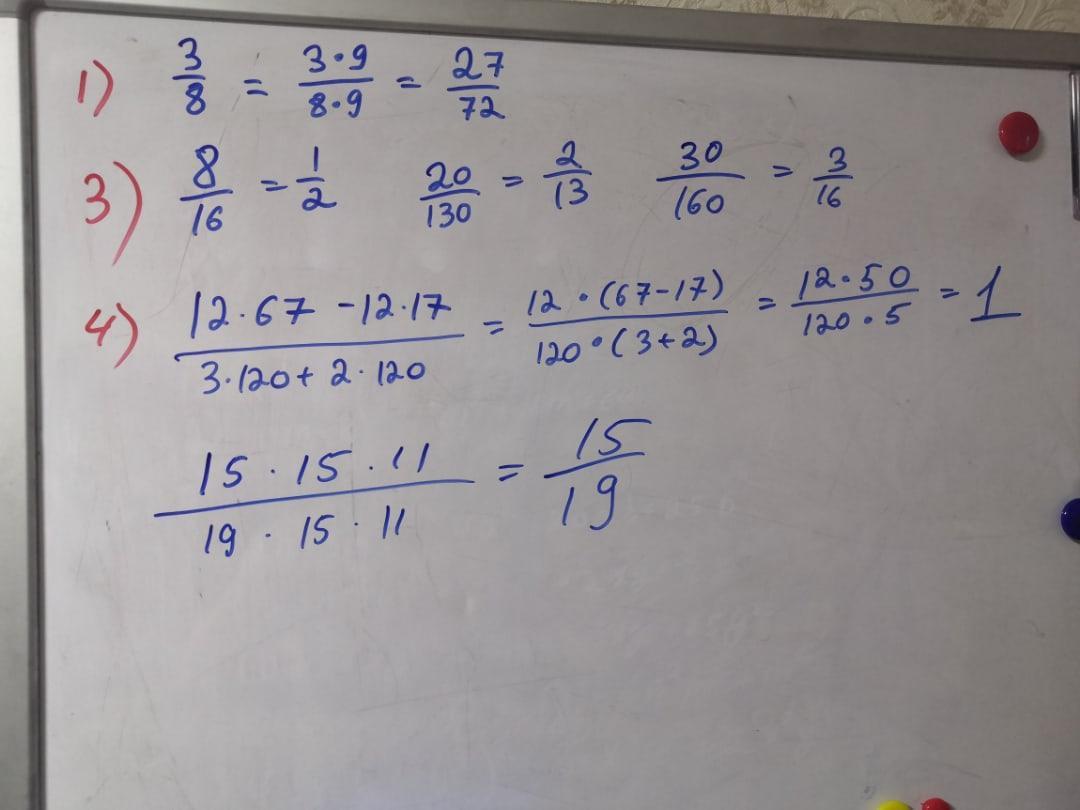 1) 3/8 = 3·9/8·9 = 27/72
3) 8/16 = 1/2 20/130 = 2/13 30/160 = 3/16
4) 12·67 - 12·17/3·120 + 2·120 = 12·(67-17)/120·(3+2) = 12·50/120·5 = 1
15·15·11/19·15·11 = 15/19